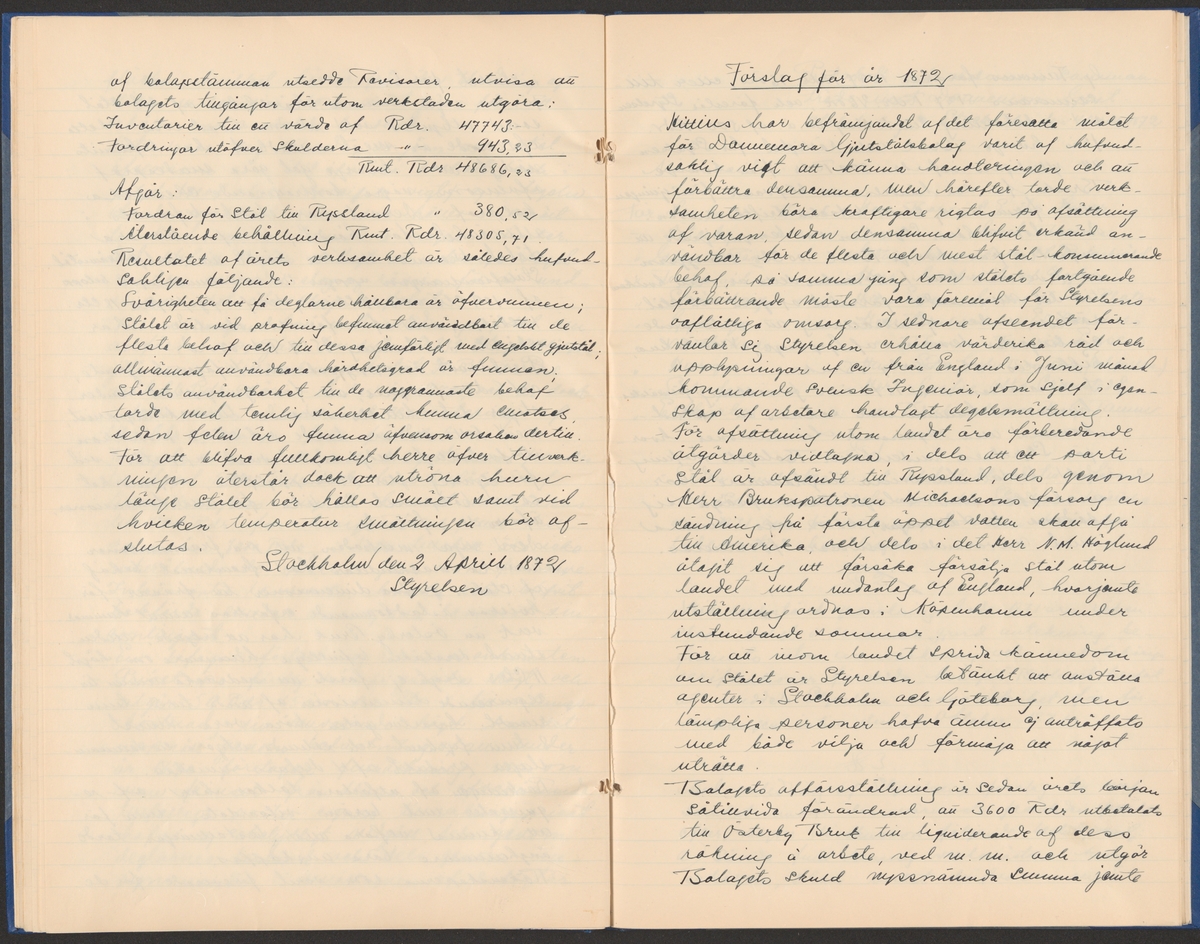 af bolagsstämman utsedda Revisorer, utvisa att
bolagets tillgångar för utom verkstaden utgöra:
Inventarier till ett värde af Rdr. 47743:-
Fordringar utöfver Skulderna " - 943,23
Rmt. Rdr 48686,23
Afgår:
Fordran för Stål till Ryssland " 380,52
Återstående behållning Rmt. Rdr. 48305,71.
Resultatet af årets verksamhet är således hufvud-
sakligen följande:
Svårigheten att få deglarne hållbara är öfvervunnen;
Stålet är vid profning befunnet användbart till de
flesta behof och till dessa jemförligt med engelskt gjutstål;
allmännast användbara hårdhetsgrad är funnen;
Stålets användbarhet till de noggrannaste behof
torde med temlig säkerhet kunna emotses,
sedan felen äro funna äfvensom orsaken dertill.
För att blifva fullkomligt herre öfver tillverk-
ningen återstår dock att utröna huru
länge Stålet bör hållas smält samt vid
hvilken temperatur smältningen bör af-
slutas.
Stockholm den 2 Aprill 1872
Styrelsen
Förslag för år 1872
Hittills har befrämjandet af det föresatta målet
för Dannemora Gjutstålsbolag varit af hufvud-
saklig vigt att känna handteringen och att
förbättra densamma, men härefter torde verk-
samheten böra kraftigare rigtas på afsättning
af varan, sedan densamma blifvit erkänd an-
vändbar för de flesta och mest stål-konsumerande
behof, på samma gång som stålets fortgående
förbättrande måste vara föremål för Styrelsens
oaflåtliga omsorg. I sednare afseendet för-
väntar sig Styrelsen erhålla värderika råd och
upplysningar af en från England i Juni månad
kommande Svensk Ingeniör, som sjelf i egen-
skap af arbetare handlagt degelsmältning.
För afsättning utom landet äro förberedande
åtgärder vidtagna, i dels att ett parti
Stål är afsändt till Ryssland, dels genom
Herr Brukspatronen Michaelsons försorg en
sändning på första öppet vatten skall afgå
till Amerika, och dels i det Herr N.M. Höglund
åtagit sig att försöka försälja stål utom
landet med undantag af England, hvarjemte
utställning ordnas i Köpenhamn under
instundande sommar.
För att inom landet sprida kännedom
om Stålet är Styrelsen betänkt att anställa
agenter i Stockholm och Göteborg, men
lämpliga personer hafva ännu ej anträffats
med både vilja och förmåga att något
uträtta.
Bolagets affärsställning är sedan årets början
såtillvida förändrad, att 3600 Rdr utbetalats
till Österby Bruk till liquiderande af dess
räkning å arbete, ved m. m. och utgör
Bolagets skuld nyssnämnda summa jemte